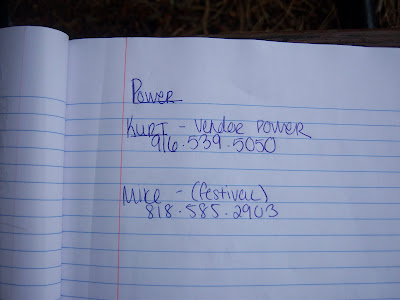 Power
Kurt - Vendor Power
916.539.5050
Mike - (festival)
818.585.2903